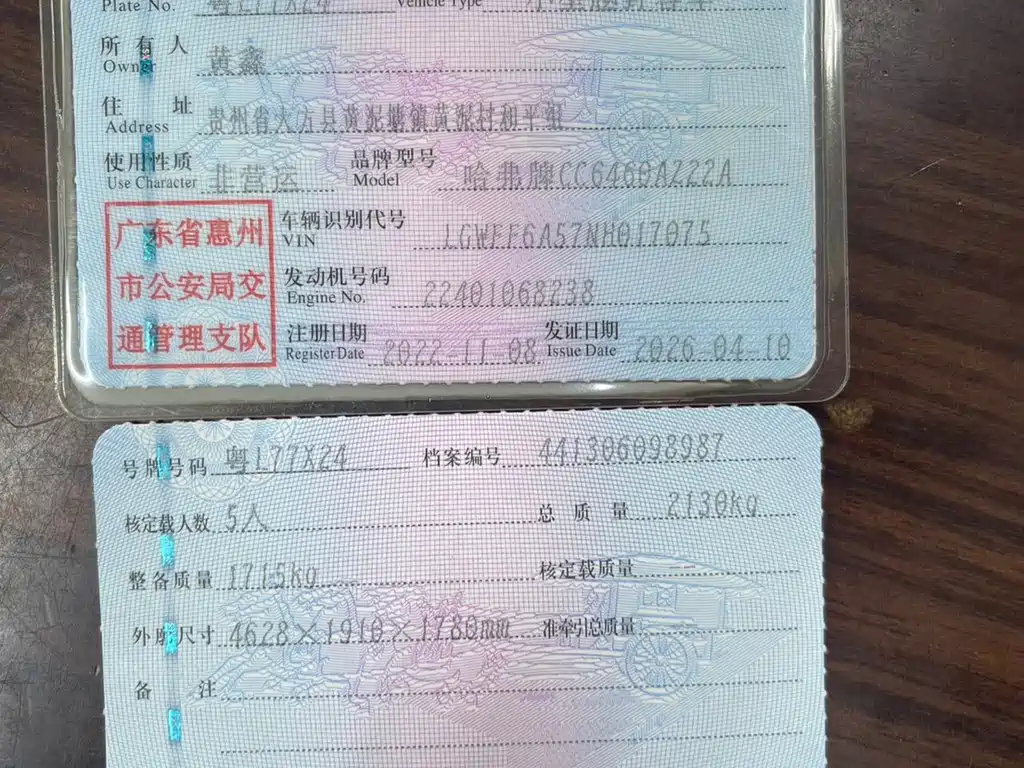 Plate No. 粤L77X24 Vehicle Type
所有人 Owner 黄鑫
住址 Address 贵州省大方县黄泥塘镇黄泥村和平组
使用性质 Use Character 非营运 品牌型号 Model 哈弗牌CC6460AZ22A
广东省惠州市公安局交通管理支队
车辆识别代号 VIN LGWFF6A57NH017075
发动机号码 Engine No. 22401068238
注册日期 Register Date 2022-11-08 发证日期 Issue Date 2026-04-10
号牌号码 粤L77X24 档案编号 441306098987
核定载人数 5人 总质量 2130kg
整备质量 1715kg 核定载质量 --
外廓尺寸 4628×1910×1780mm 准牵引总质量 --
备注